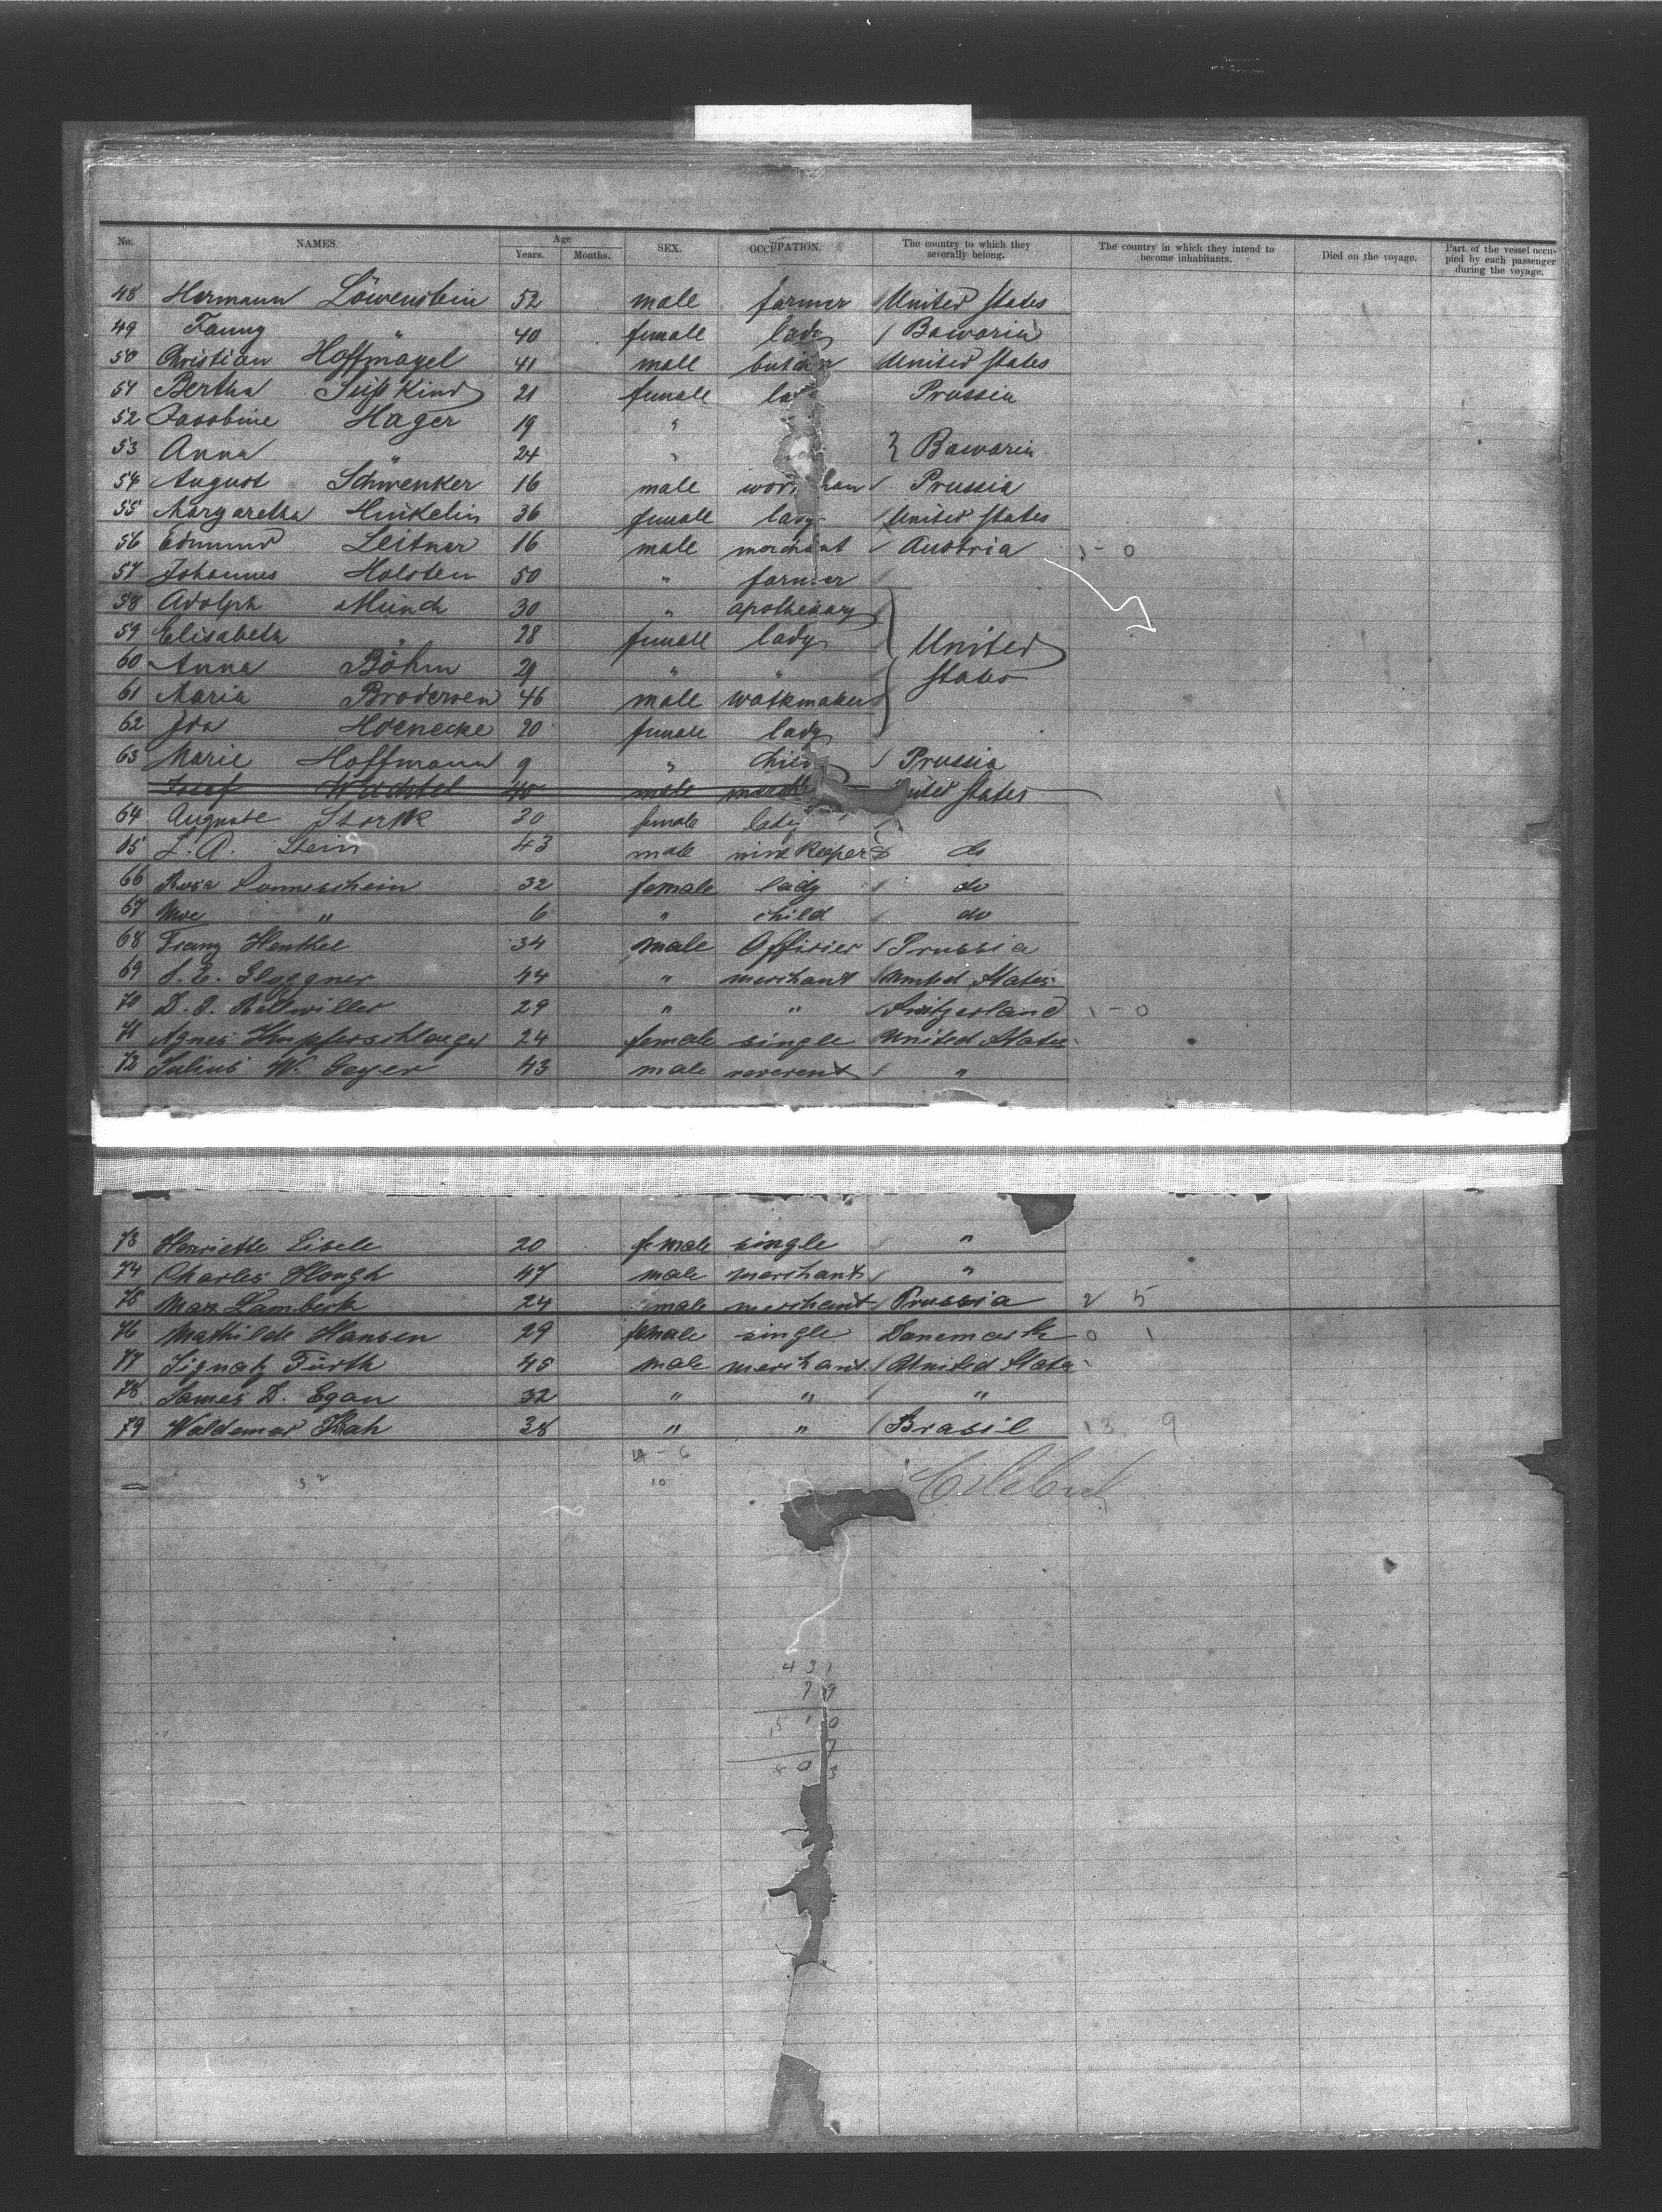 No. NAMES. Age Years. Months. SEX. OCCUPATION. The country to which they severally belong. The country in which they intend to become inhabitants. Died on the voyage. Part of the vessel occupied by each passenger during the voyage.
48 Hermann Löwenstein 52 male farmer United States
49 Fanny " 40 female lady Bawaria
50 Christian Hoffmagel 41 male butcher United States
51 Bertha Süßkind 21 female la Prussia
52 Jacobine Hager 19 "
53 Anna " 24 " } Bawaria
54 August Schwenker 16 male workman Prussia
55 Margaretha Hinkelin 36 female lady United States
56 Edmund Leitner 16 male merchant Austria 1 - 0
57 Johannes Holsten 50 " farmer
58 Adolph Münch 30 " apothekary
59 Elisabeth " 28 female lady United
60 Anna Böhm 29 " " States
61 Maria Brodersen 46 male watkmaker
62 Ida Hoenecke 20 female lady
63 Marie Hoffmann 9 " child Prussia
Josef Wachtel 40 male United States
64 Auguste Stork 30 female lady
65 L. A. Stein 43 male wine Keeper do
66 Rosa Sonneschein 32 female lady do
67 Moe " 6 " child do
68 Franz Henkel 34 male Offisier Prussia
69 S. E. Gloggner 44 " merchant United States
70 D. J. Rellwiller 29 " " Switzerland 1 - 0
71 Agnes Hupferschlaeger 24 female single United States
72 Julius W. Geyer 43 male reverent "
73 Henriette Lisele 20 female single "
74 Charles Hough 47 male merchant "
75 Max Lambert 24 male merchant Prussia 2 5
76 Mathilde Hansen 29 female single Danemark 0 1
77 Signatz Fürth 45 male merchant United States
78 James D. Egan 32 " " "
79 Waldemar Krah 38 " " Brasil 13 9
- 6
32 10
431
79
510
7
503